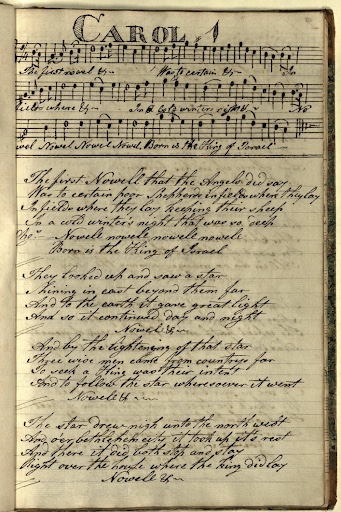 CAROL 1
The first novel &c Was to certain &c In
fields where &c In a cold winters night &c No
wel Nowel Nowel Nowel Born is the King of Israel
The first Nowell that the Angels did say
Was to certain poor Shepherds in fields where they lay
In fields where they lay keeping their sheep
In a cold winters night that was so deep
Nowele nowele nowele nowele
Born is the King of Israel
They looked up and saw a star
Shining in east beyond them far
And to the earth it gave great light
And so it continued day and night
Nowel &c
And by the lightening of that star
Three wise men came from countrys far
To seek a King was their intent
And to follow the star wheresoever it went
Nowele &c
The star drew nigh unto the north west
And oer bethlehem city it took up it's rest
And there it did both stop and stay
Right over the house where the king did lay
Nowele &c